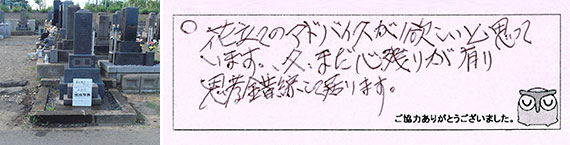 ○ 色々のアドバイスが欲しいと思って
います。又、まだ心残りが有り
思考錯綜して居ります。
ご協力ありがとうございました。